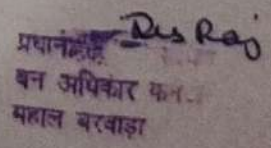 प्रधान Des Raj
वन अधिकार
महाल बरवाड़ा